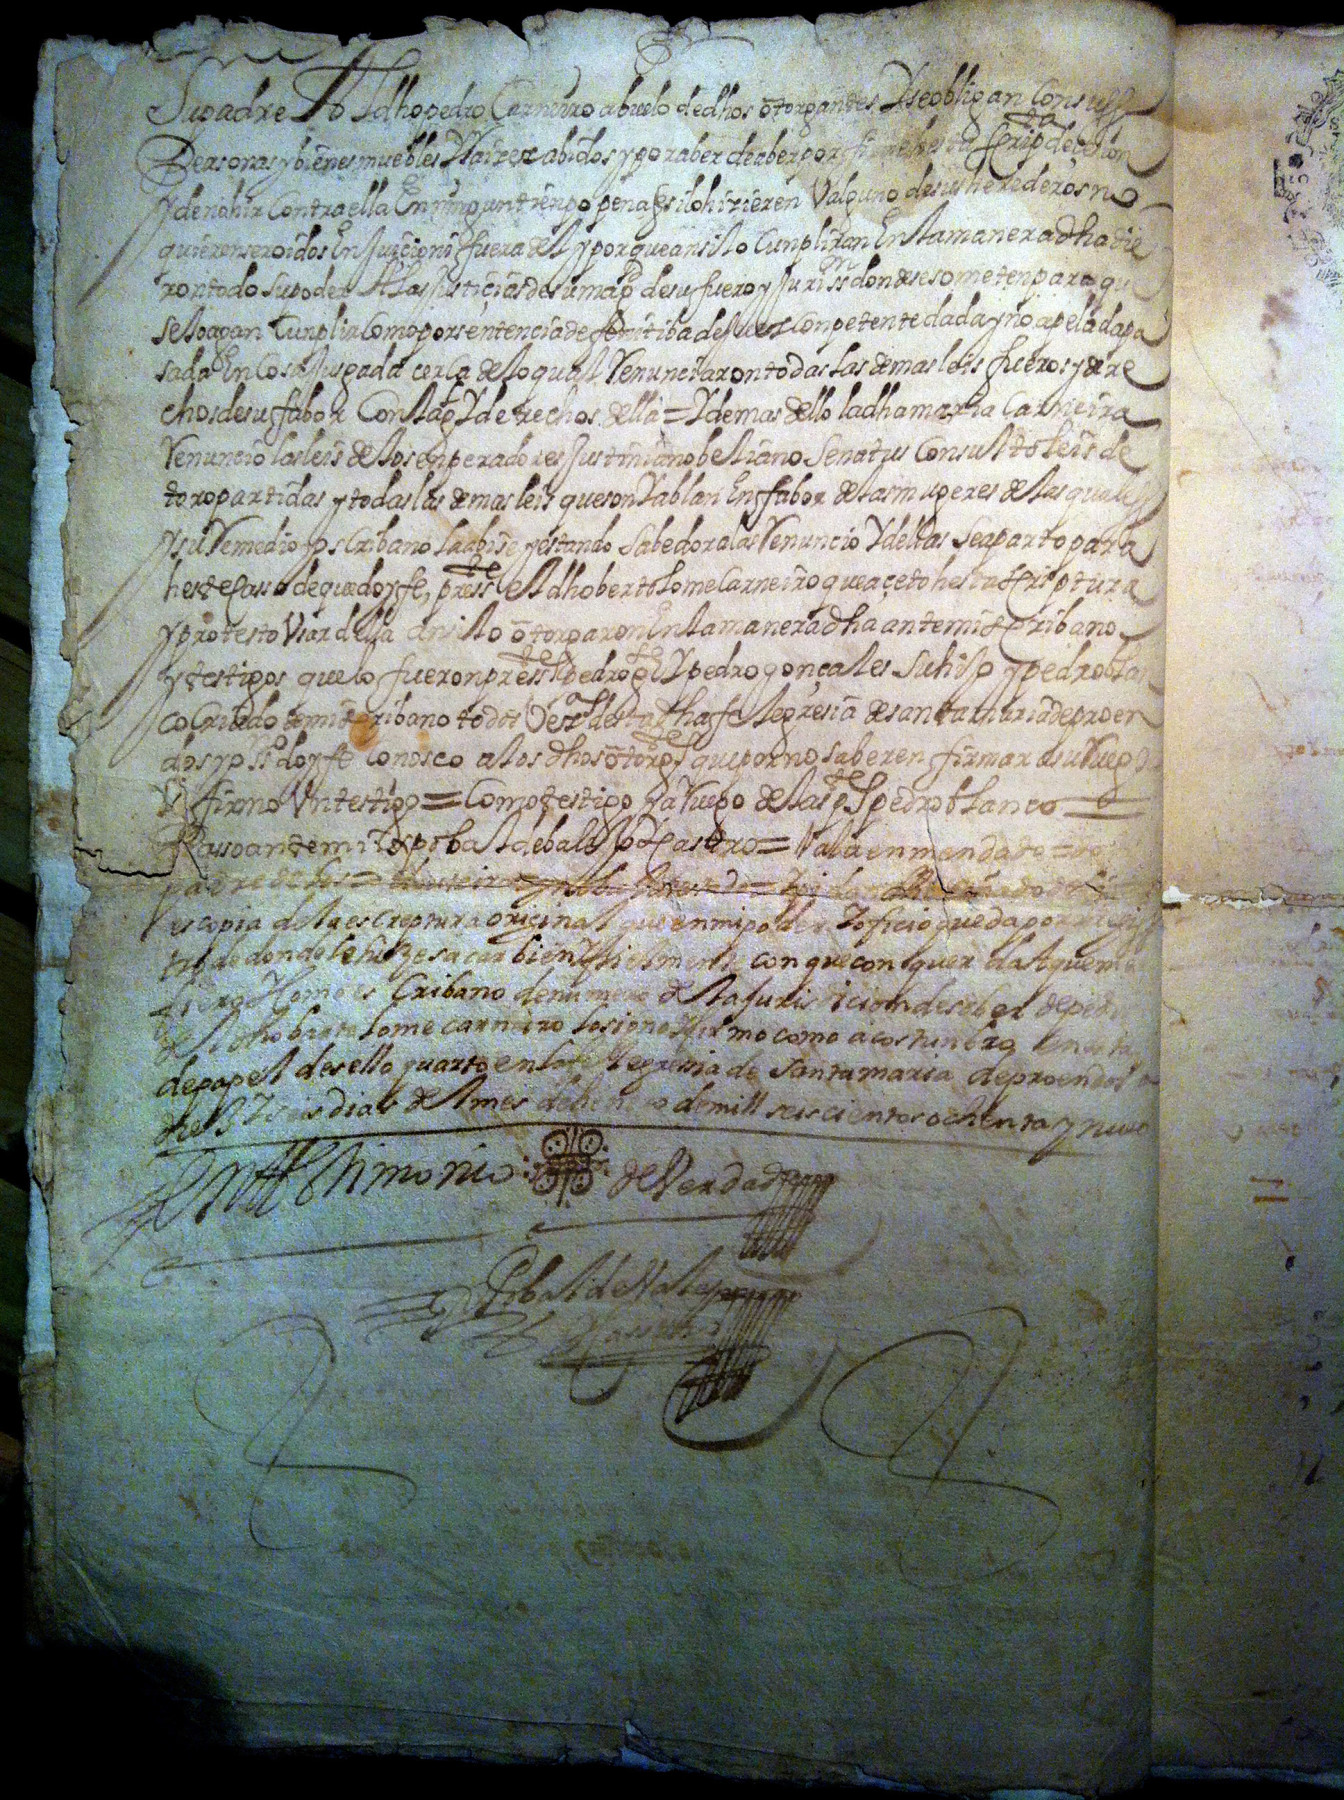 Supadre Yo Ydhopedro Carneiro abuelo dedhos otorgantes Yseobligan Consuss
Personas ybienes muebles Yraizes abidos yporaber deaberporfirme hesta scripta decion
ydenohir Contraella Enningun tienpo pena silohizieren Valguno desusherederos no
quieren seroidos Enjuicioni fuera del yporqueansilo Cunpliran Enlamaneradha die
rontodo supoder Alasjusticias desumagd desufuero yjurisson dondesesometen paraque
seloagan Cunplir Comoporsentenciadefenitiba dejuez Conpetente dada yno apelada pa
sada En Cosa Jusgada cerca deloqual Renunciaron todas las demas leis fueros yderre
chos desufabor Con lagl Yderechos della = Ydemas dello ladha maria Carneira
Renuncio lasleis delos enperadores Justiniano beliano Senatus Consulto leis de
toro partidas ytodas las demas leis queson Yablan Enfabor delasmugeres delas quales
ysu Remedio yo scribano laabise yestando Sabedora las Renuncio Ydellas seaparto para
hestecasso dequedoyfe, presste Eldhobertolome Carneiro queaceto hesta scriptura
yprotesto Usar della ansilo otorgaron Enlamaneradha antemi scribano
ytestigos quelo fueron presstes pedro gls Ypedro gonçales suhijo ypedro bla
co Criado demi scribano todos Vezos desta dha felegresia desantamaria deproen
dos yyo ssno doyfe Conosco alos dhos otorgtes quepornosaberen firmar asuRuego
firmo Untestigo = Comotestigo yaRuego delas ptes pedro blanco =
Passo antemi xpobal debalesyo Castro = Vala enmendado =
escopia dela escreptura original que enmipoder Yoficio queda por regis
tro dedonde lehize sacar bien Yfielmente con que concuerda Aqueme
fiero Ycomo escribano denumero dela jurisdicion desober depedi
deldho bartolome carneiro losigno Yfirmo como acostunbro en
depapel desello quarto enlafelegresia de santamaria deproendos a
diez Yseis dias delmes dehenero demill seiscientos ochenta y nueve
En testimonio de Verdad
Xpobal de Vales
y Castro